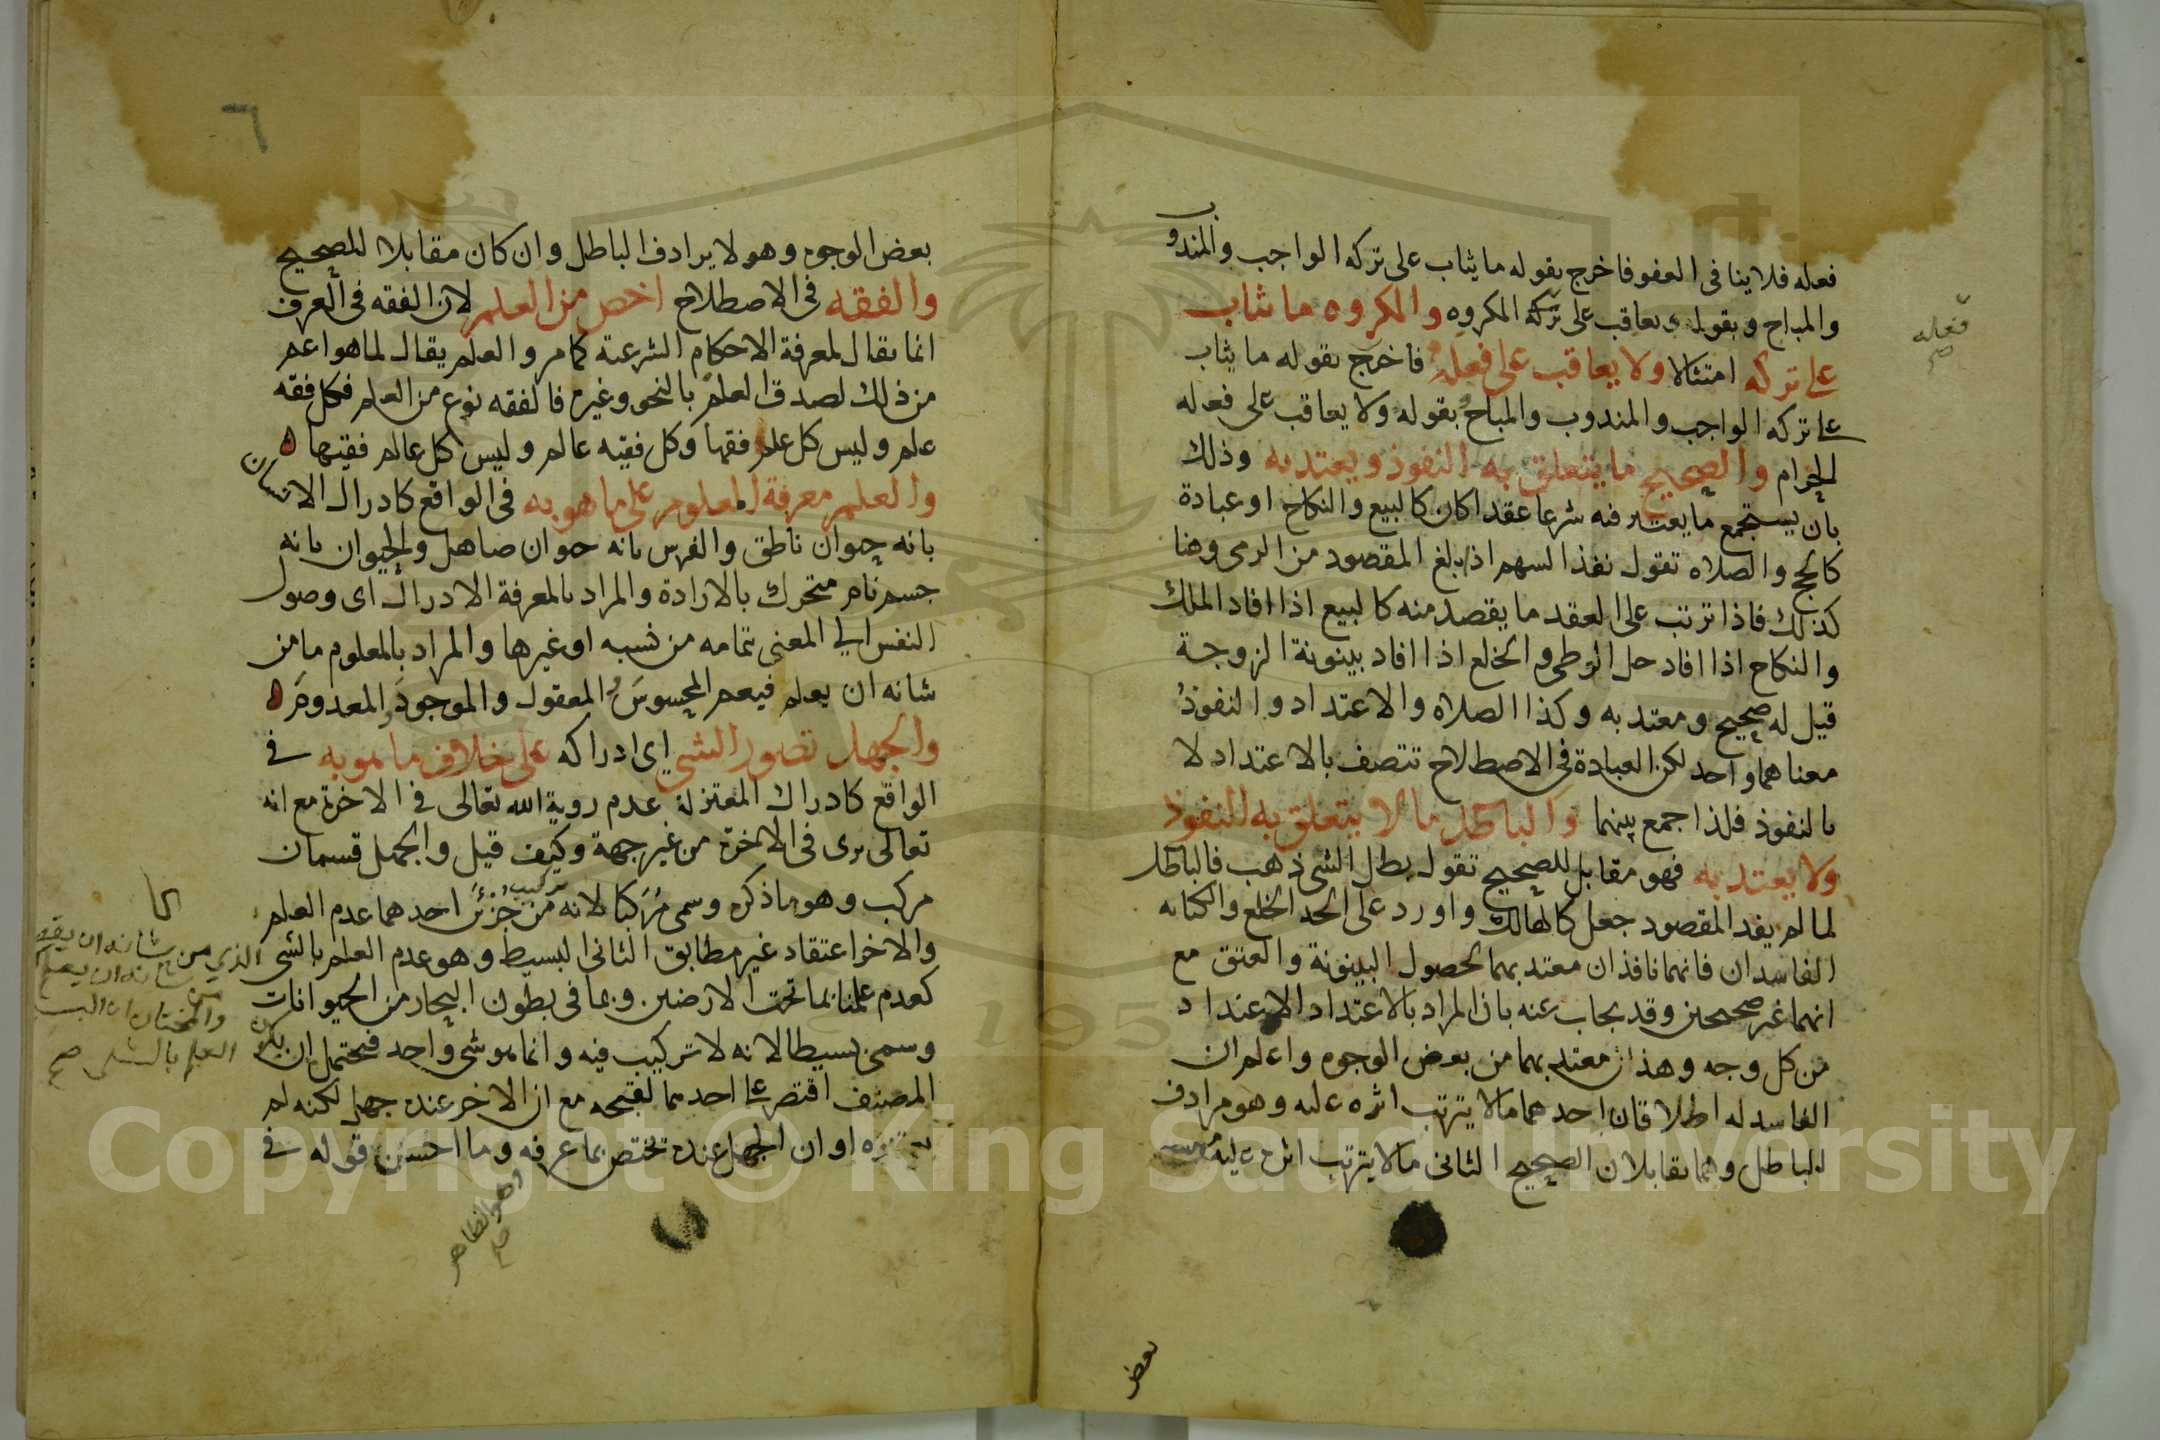 فعله فلا ينافى العفو فاخرج بقوله ما يثاب على تركه الواجب والمندوب
والمباح وبقوله ويعاقب على تركه المكروه والمكروه ما يثاب
على تركه امتثالا ولا يعاقب على فعله فاخرج بقوله ما يثاب
على تركه الواجب والمندوب والمباح وبقوله ولا يعاقب على فعله
الحرام والصحيح ما يتعلق به النفوذ ويعتد به وذلك
بان يستجمع ما يعتبر فيه شرعا عقدا كان كالبيع والنكاح او عبادة
كالحج والصلاه تقول نفذ السهم اذا بلغ المقصود من الرمى وهنا
كذلك فاذا ترتب على العقد ما يقصد منه كالبيع اذا افاد الملك
والنكاح اذا افاد حل الوطى والخلع اذا افاد بينونة الزوجة
قيل له صحيح ومعتد به وكذا الصلاه والاعتداد والنفوذ
معناهما واحد لكن العبادة فى الاصطلاح تتصف بالاعتداد لا
بالنفوذ فلذا جمع بينهما والباطل ما لا يتعلق به النفوذ
ولا يعتد به فهو مقابل للصحيح تقول بطل الشى ذهب فالباطل
لما لم يفد المقصود جعل كالهالك واورد على الحد الخلع والكتابه
الفاسدان فانهما نافذان معتد بهما لحصول البينونة والعتق مع
انهما غير صحيحين وقد يجاب عنه بان المراد بالاعتداد الاعتداد
من كل وجه وهذان معتد بهما من بعض الوجوه واعلم ان
الفاسد له اطلاقان احدهما ما لا يترتب اثره عليه وهو مرادف
للباطل وهما يقابلان الصحيح الثانى ما لا يترتب اثره عليه من
بعض
فعله
صح
٦
بعض الوجوه وهو لا يرادف الباطل وان كان مقابلا للصحيح
والفقه فى الاصطلاح اخص من العلم لان الفقه فى العرف
انما يقال لمعرفة الاحكام الشرعية كما مر والعلم يقال لما هو اعم
من ذلك لصدق العلم بالنحو وغيره فالفقه نوع من العلم فكل فقه
علم وليس كل علم فقها وكل فقيه عالم وليس كل عالم فقيها
والعلم معرفة المعلوم على ما هو به فى الواقع كادراك الانسان
بانه حيوان ناطق والفرس بانه حيوان صاهل والحيوان بانه
جسم نام متحرك بالارادة والمراد بالمعرفة الادراك اى وصول
النفس الى المعنى بتمامه من نسبه او غيرها والمراد بالمعلوم ما من
شانه ان يعلم فيعم المحسوس والمعقول والموجود والمعدوم
والجهل تصور الشى اى ادراكه على خلاف ما هو به فى
الواقع كادراك المعتزلة عدم روية الله تعالى فى الاخرة مع انه
تعالى يرى فى الاخرة من غير جهة وكيف قيل والجهل قسمان
مركب وهو ما ذكره وسمى مركبا لانه تركيب من جزئين احدهما عدم العلم
والاخر اعتقاد غير مطابق الثانى البسيط وهو عدم العلم بالشى
كعدم علمنا بما تحت الارضين وبما فى بطون البحار من الحيوانات
وسمى بسيطا لانه لا تركيب فيه وانما هو شى واحد فيحتمل ان يكون
المصنف اقتصر على احدهما لقبحه مع ان الاخر عنده جهل لكنه لم
او ان الجهل عنده تختص بما عرفه وما احسن قوله فى
وهو الظاهر
صح
الذي من شانه ان
العلم بالشى صح
Copyright © King Saud University
1957